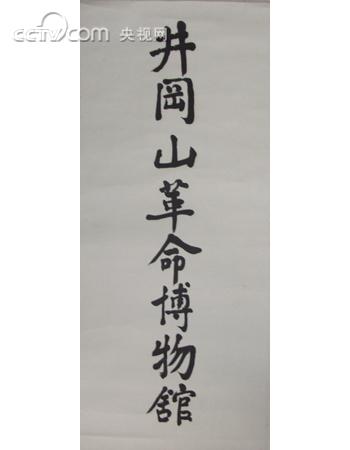 cctv.com 央视网
井岡山革命博物舘